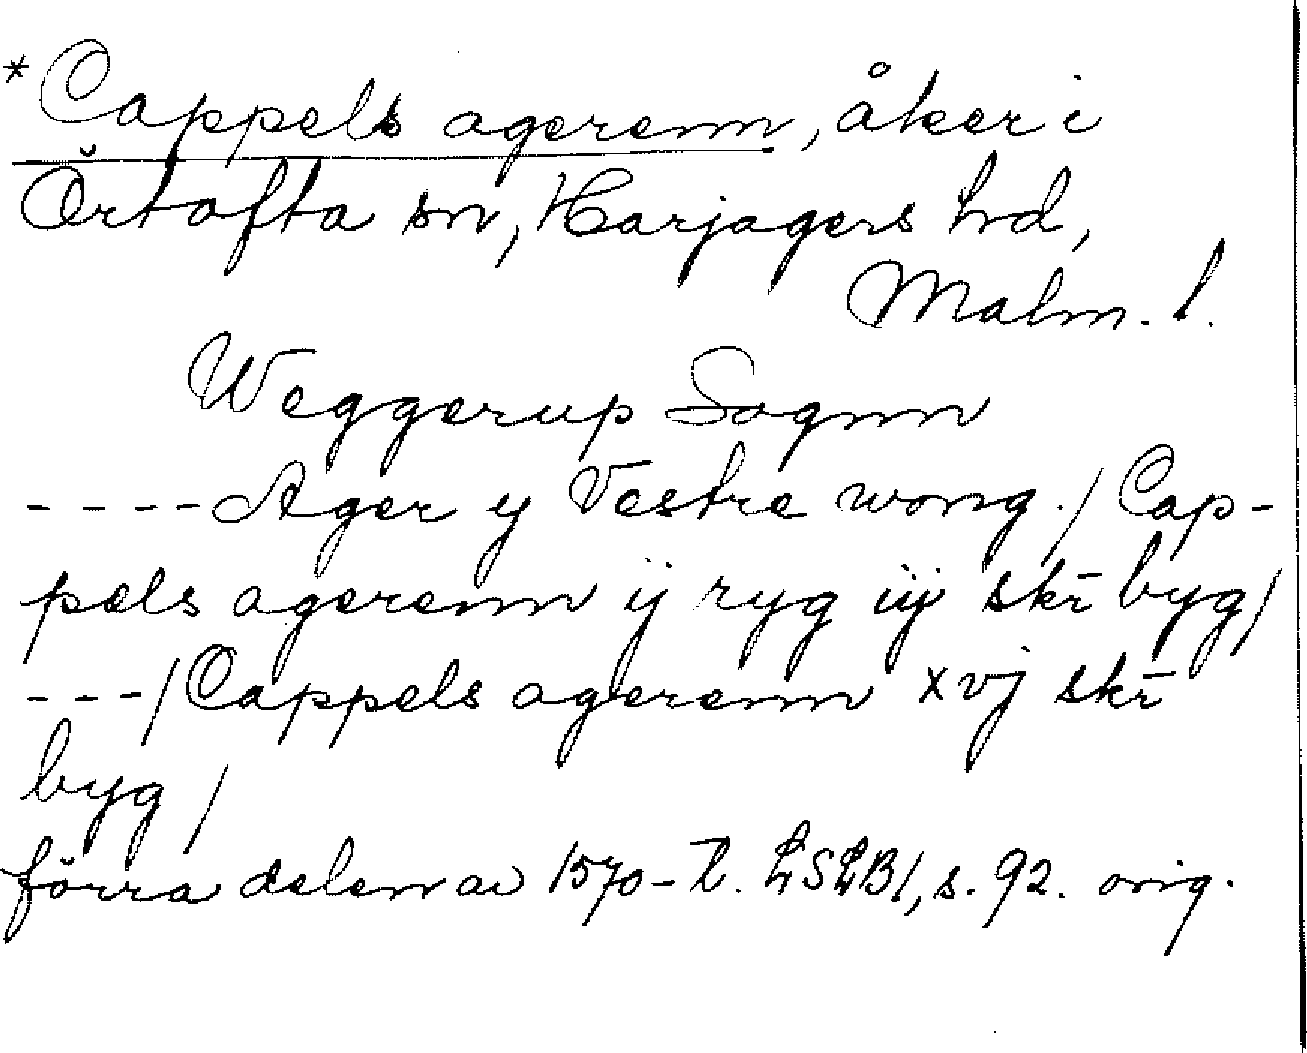 *Cappels agerenn, åker i
Örtofta sn, Harjagers hd,
Malm. l.
Weggerup Sognn
----Ager y Vestre wong./ Cap-
pels agerenn ij ryg iij skr̄ byg/
---/Cappels agerenn xvj skr̄
byg/
förra delen av 1570-t. LSLB1, s. 92. orig.